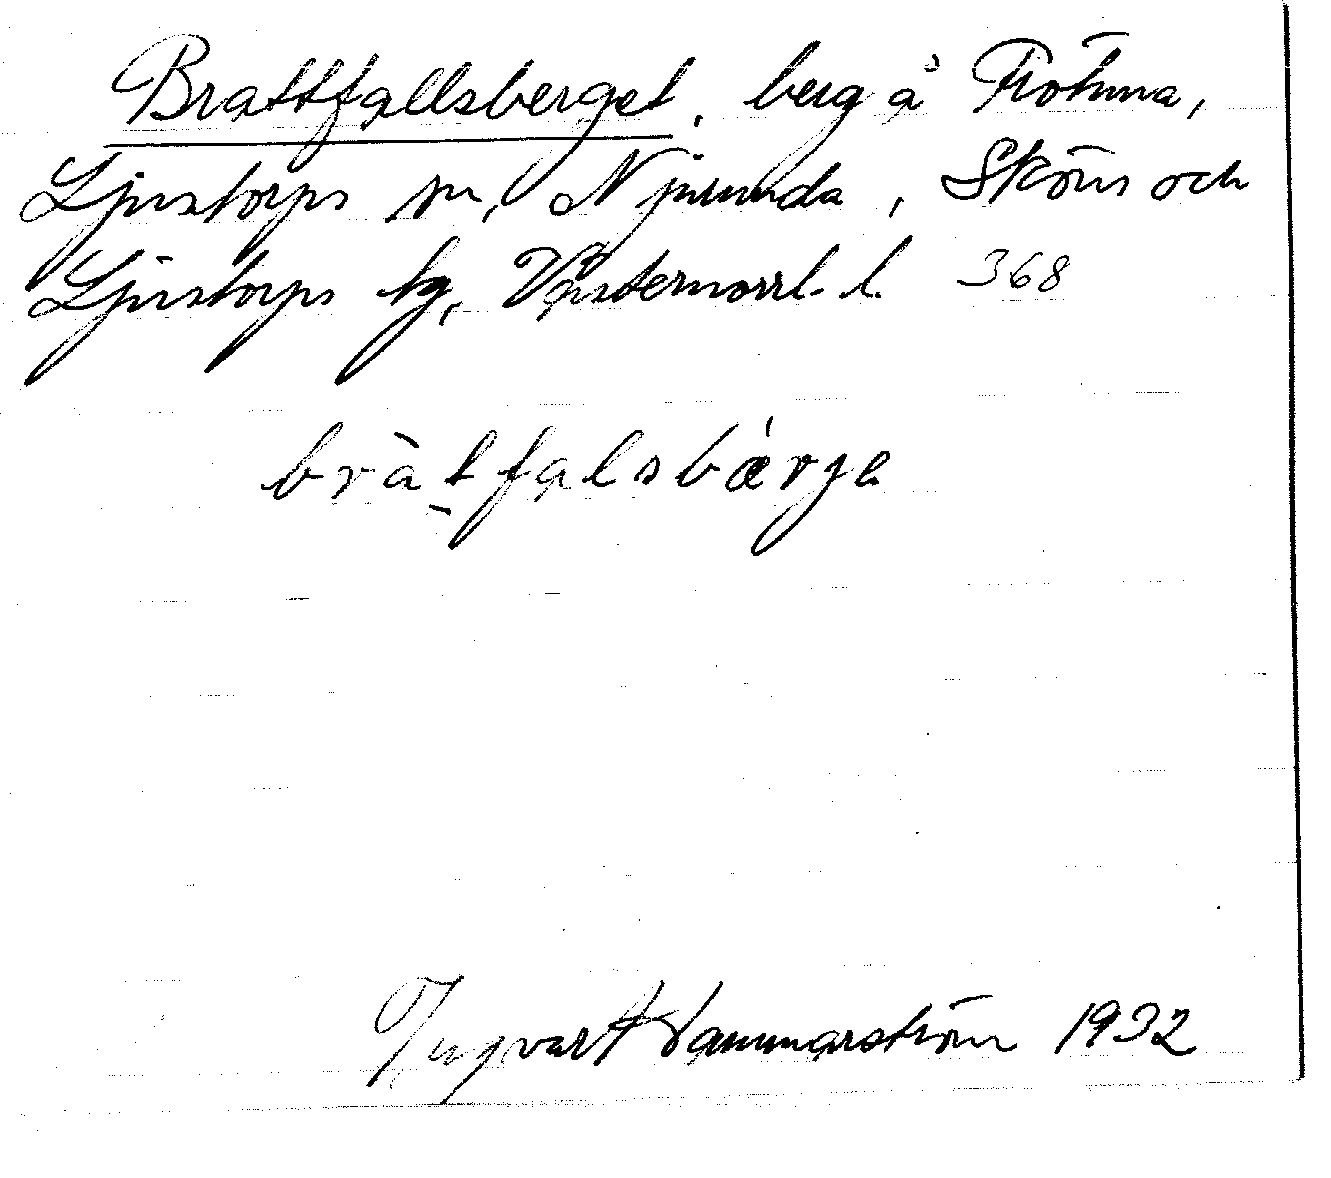 Brattfallsberget, berg å Frötuna,
Ljustorps sn, Njurunda, Sköns och
Ljustorps tg, Västernorrl. l. 368
bràt̠falsbǽrje
Ingvar Hammarström 1932